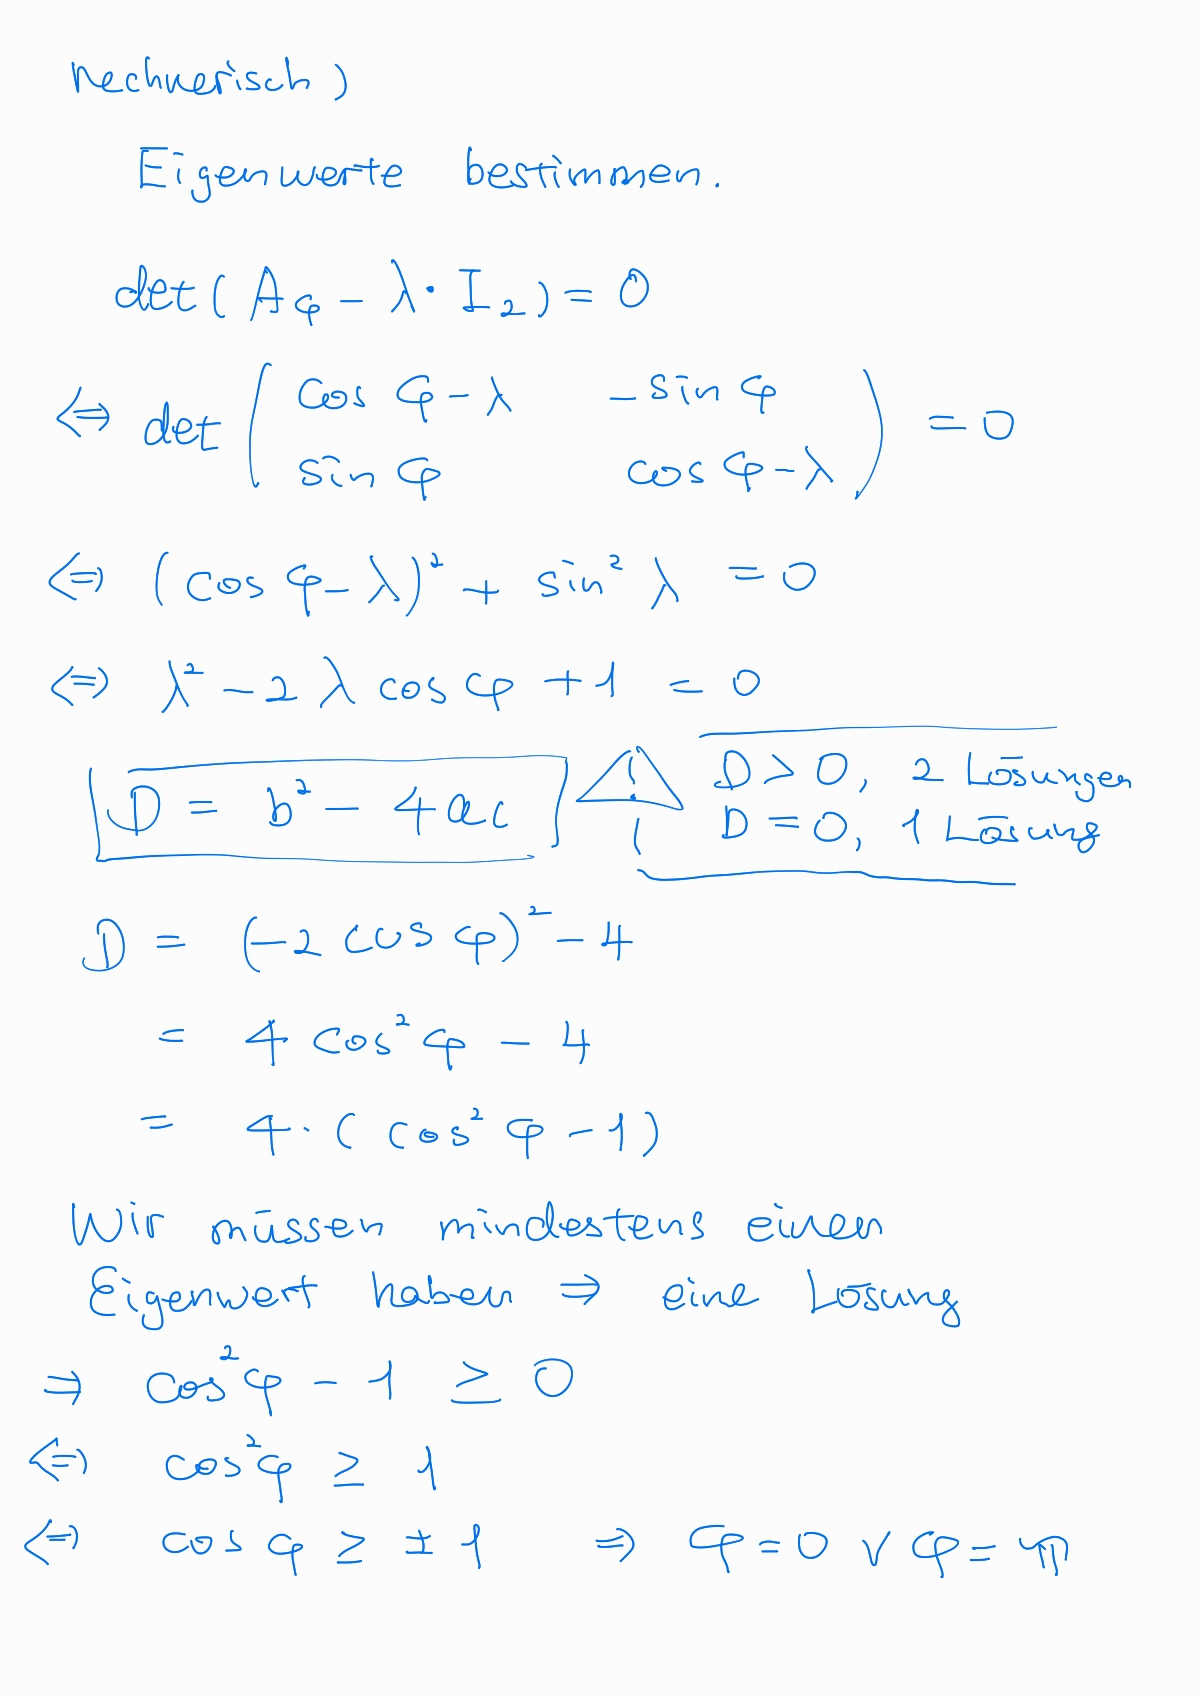 rechnerisch)
Eigenwerte bestimmen.
det(A_φ - λ · I_2) = 0
⇔ det ( cos φ - λ   - sin φ
sin φ   cos φ - λ ) = 0
⇔ (cos φ - λ)² + sin² λ = 0
⇔ λ² - 2 λ cos φ + 1 = 0
D = b² - 4ac
!
!
D > 0, 2 Lösungen
D = 0, 1 Lösung
D = (-2 cos φ)² - 4
= 4 cos² φ - 4
= 4 · (cos² φ - 1)
Wir müssen mindestens einen
Eigenwert haben ⇒ eine Lösung
⇒ cos² φ - 1 ≥ 0
⇔ cos² φ ≥ 1
⇔ cos φ ≥ ± 1 ⇒ φ = 0 ∨ φ = π